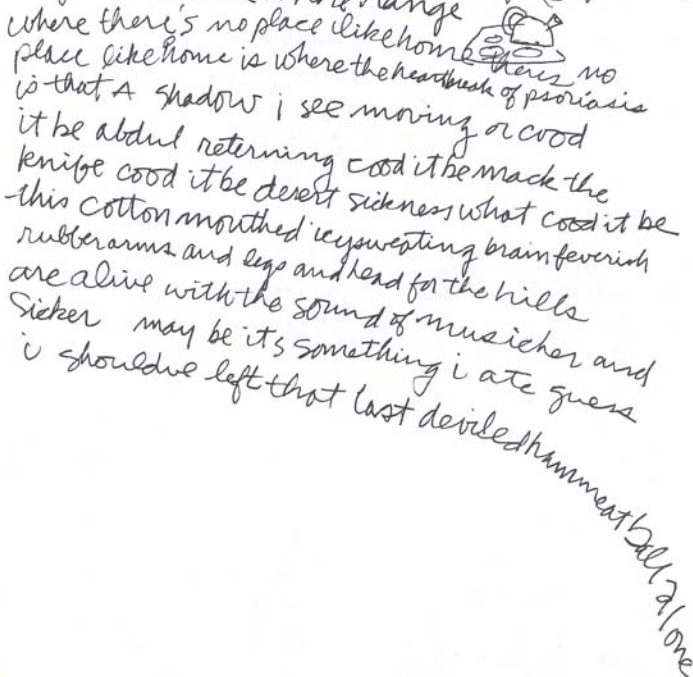 range
where there's no place likehome theres no
place likehome is where the heartbreak of psoriasis
is that A shadow i see moving or cood
it be abdul returning cood it be mack the
knife cood it be desert sickness what cood it be
this cotton mouthed icysweating brain feverish
rubberarms and legs and head for the hills
are alive with the sound of musicker and
sicker may be its something i ate guess
i shouldve left that last deviledhammeatball alone